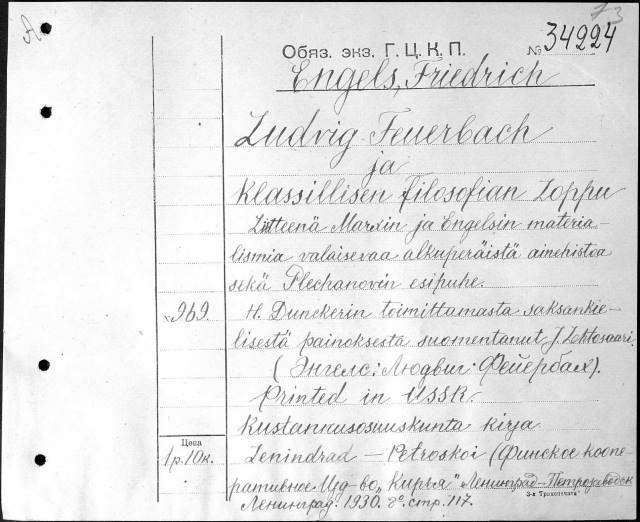 73
А
Обяз. экз. Г. Ц. К. П. № 34224
Engels, Friedrich
Ludvig Feuerbach
ja
klassillisen filosofian loppu
Liitteenä Marxin ja Engelsin materia-
lismia valaisevaa alkuperäistä ainehistoa
sekä Plechanovin esipuhe.
№ 969. H. Dunckerin toimittamasta saksankie-
lisestä painoksesta suomentanut J. Lehtosaari.
(Энгелс: Людвиг Фейербах).
Printed in USSR.
Kustannusosuuskunta kirja
Цена
1 р. 10 к. Lenindrad — Petroskoi (Финское коопе-
ративное Изд-во „Кирья" Ленинград - Петрозаводск
Ленинград. 1930. 8°. стр. 117.